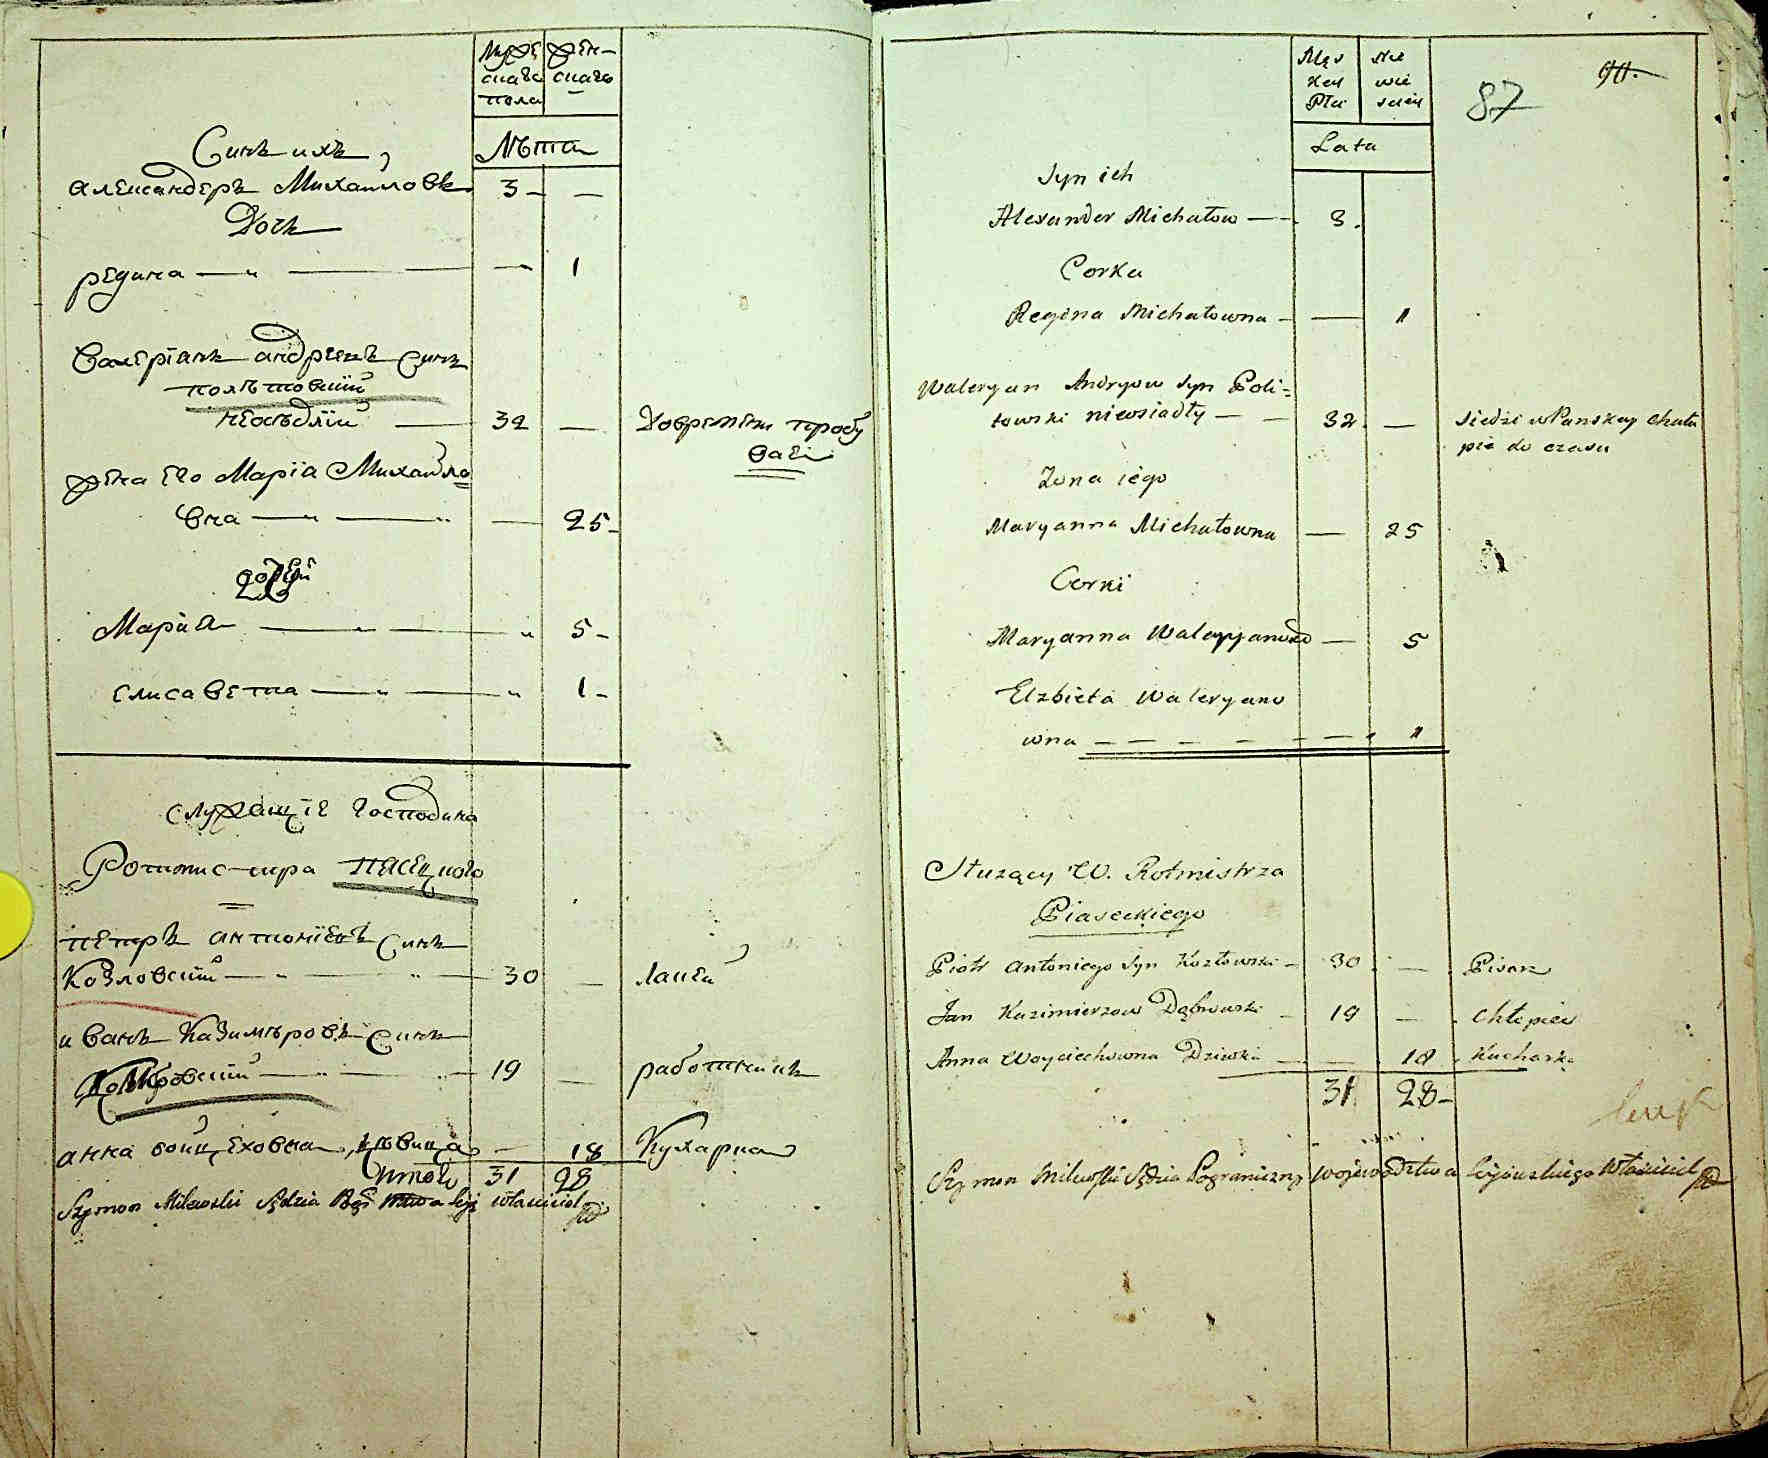 Мужескаго пола
Женскаго
Лѣта
Синъ ихъ
Александеръ Михайловъ 3 — —
Дочъ
Регина — „ — — 1
Валеріанъ Андріевъ Синъ
Полѣтовскій
Неосѣдлій — 32 —
Жена Его Маріа Михайло
вна — „ — „ — 25 —
дочери
Маріа — „ — „ 5 —
Елисавета — „ — „ 1 —
Служащіе Господина
Ротмистра Пясецкого
Петръ Антоніевъ Синъ
Козловскій — „ „ — 30 — лакей
Иванъ Казимѣровъ Синъ
19 — работникъ
Анна Войцеховна дѣвица — 18 Кухарка
Итого 31 28
Szymon Milewski Sędzia właściciel
Męz key Płci
Nie wie sciey
Lata
87
90.
Syn ich
Alexander Michałow — 3.
Corka
Regina Michałowna — — 1
Waleryan Andryow Syn Poli=
towski nieosiadły — — 32 — Siedzi w Panskey Chału
pie do czasu
Zona iego
Maryanna Michałowna — 25
Corki
Maryanna Waleryanowna — 5
Elzbieta Waleryano
wna — — — — — — 1
Służący W. Rotmistrza
Piaseckiego
Piotr Antoniego Syn Kozłowski — 30 — Pisarz
Jan Kazimierzow Dąbrowski — 19 — Chłopiec
Anna Woyciechowna Dziewka — — 18 Kucharka
31 28 —
Szymon Milewski Sędzia Pograniczny Wojewodztwa Kijowskiego Właściciel